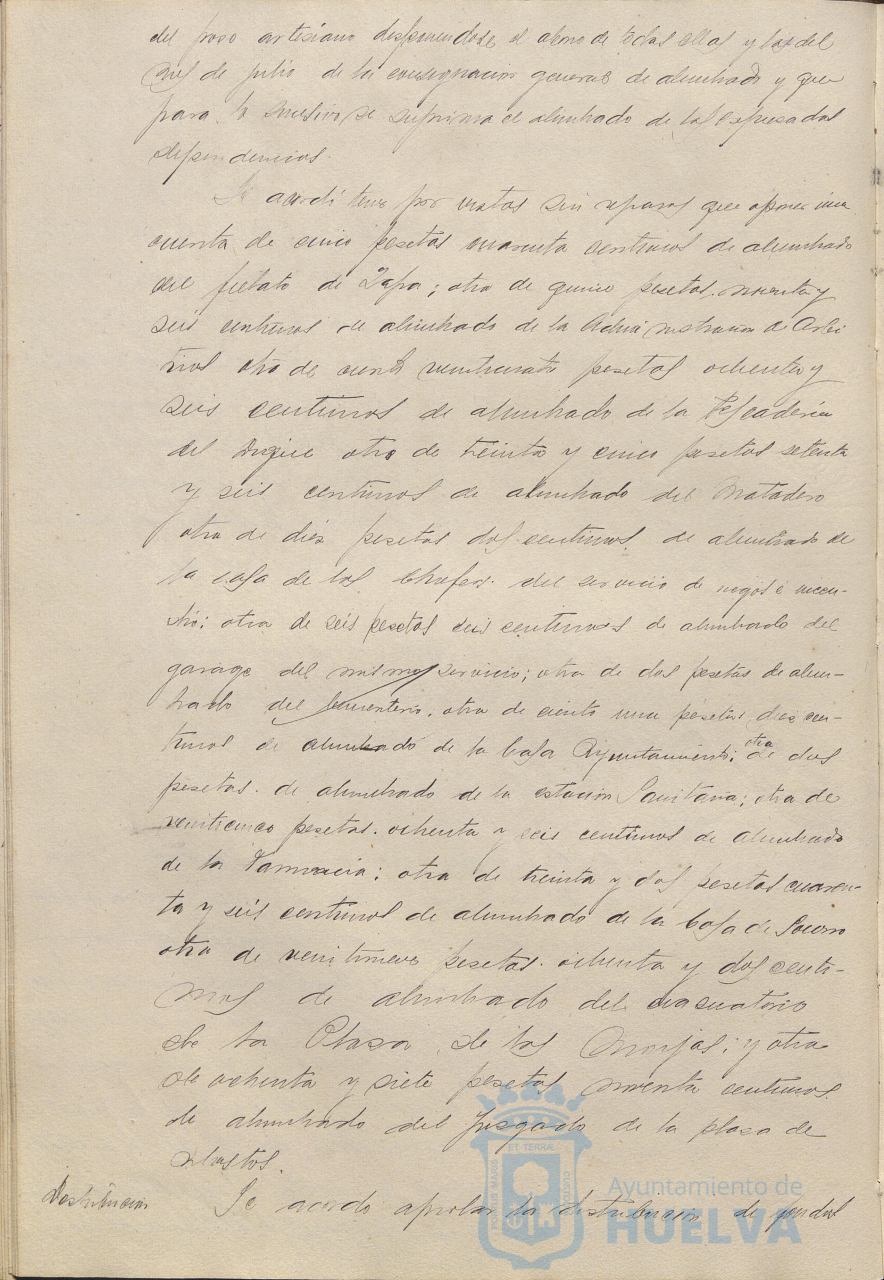 del poso artesiano desponiendose el abono de todas ellas y las del
mes de julio de la consignacion general de alumbrado y que
para lo sucesivo se suprima el alumbrado de las espresadas
dependencias.
Se acordó tener por vistas sin reparos que oponer una
cuenta de cinco pesetas cuarenta centimos de alumbrado
del fielato de Zafra; otra de quince pesetas noventa y
seis centimos de alumbrado de la Administracion de Arbi
trios otra de ciento pesetas ochenta y
seis centimos de alumbrado de la Pescaderia
del Dique otra de treinta y cinco pesetas setenta
y seis centimos de alumbrado del Matadero
otra de diez pesetas dos centimos de alumbrado de
la casa de los Chofers del servicio de riegos é incen-
dio; otra de seis pesetas seis centimos de alumbrado del
garage del mismo servicio; otra de dos pesetas de alum-
brado del Cementerio. otra de ciento una pesetas diez cen-
timos de alumbrado de la Casa Ayuntamiento; otra de dos
pesetas de alumbrado de la estacion Sanitaria; otra de
veinticinco pesetas ochenta y seis centimos de alumbrado
de la Farmacia; otra de treinta y dos pesetas cuaren-
ta y seis centimos de alumbrado de la Casa de Socorro
otra de veintinueve pesetas ochenta y dos centi-
mos de alumbrado del evacuatorio
de la Plasa de las Monjas; y otra
de ochenta y siete pesetas noventa centimos
de alumbrado del Jusgado de la plasa de
abastos.
Distribucion Se acordo aprobar la distribucion de fondos
PORTUS MARIS
ET TERRÆ
CUSTODIA
Ayuntamiento de
HUELVA